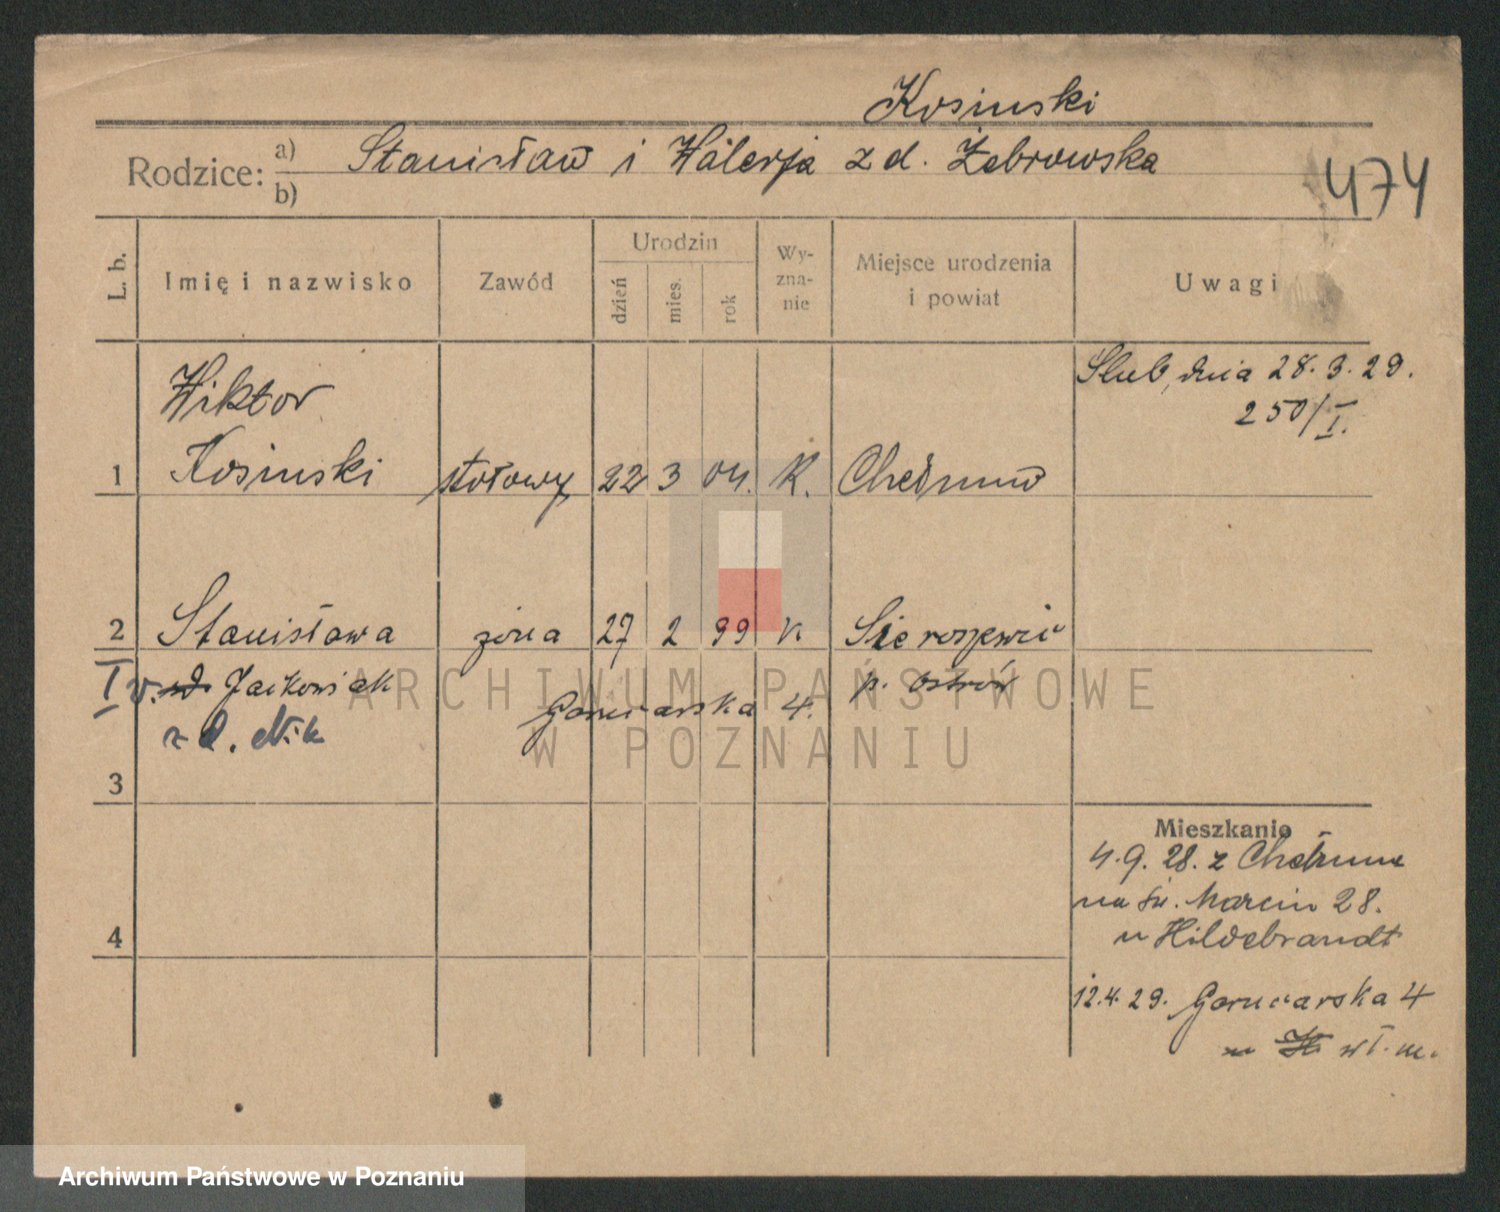 Kosinski
Rodzice: a) Stanisław i Walerja z d. Żebrowska
b)
474
L. b.
Imię i nazwisko
Zawód
Urodzin
dzień
mies.
rok
Wy-
zna-
nie
Miejsce urodzenia
i powiat
Uwagi
Ślub, dnia 28.3.29.
250/I.
Wiktor
1 Kosinski stołowy 22 3 04. K. Chełmno
2 Stanisława żona 27 2 99 k.
I v. Jackowiak p. Ostrów
z d. Nik
Garncarska 4.
3
4
Mieszkanie
4.9.28. z Chełmna
na Św. Marcin 28.
u Hildebrandt
12.4.29. Garncarska 4
wł. m.
ARCHIWUM PAŃSTWOWE
W POZNANIU
Archiwum Państwowe w Poznaniu